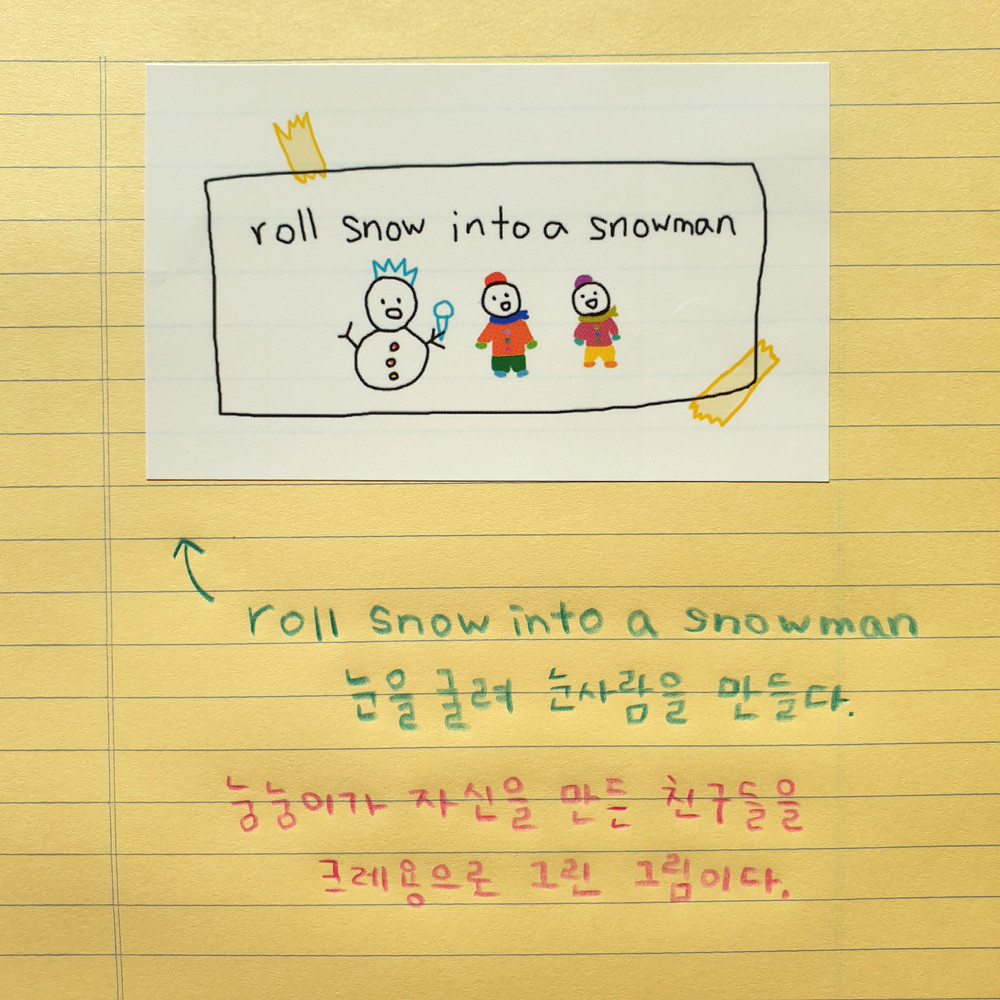 roll snow into a snowman
roll snow into a snowman
눈을 굴려 눈사람을 만들다.
눙눙이가 자신을 만든 친구들을
크레용으로 그린 그림이다.